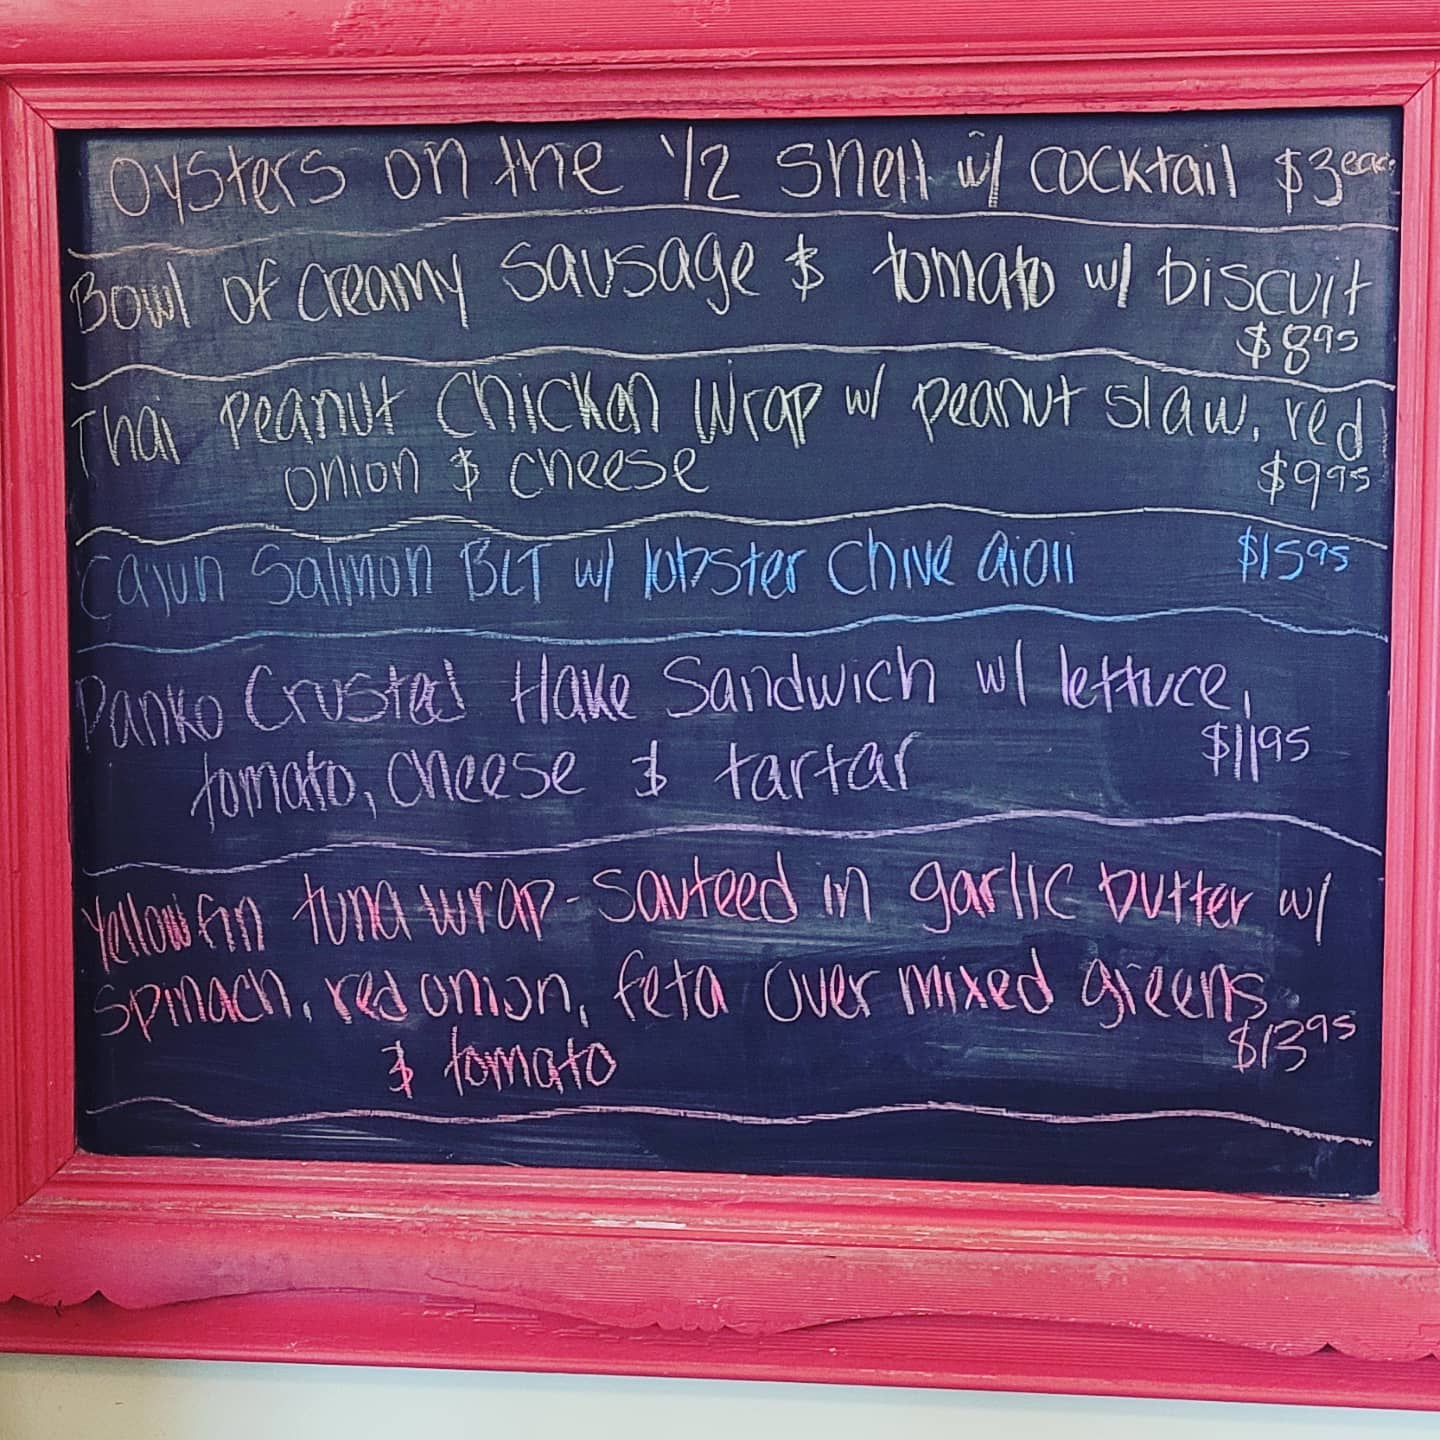 Oysters on the 1/2 shell w/ cocktail $3 each
Bowl of creamy sausage & tomato w/ biscuit
$8 95
Thai Peanut Chicken Wrap w/ peanut slaw, red
onion & cheese $9 95
Cajun Salmon BLT w/ lobster Chive aioli $15 95
Panko Crusted Hake Sandwich w/ lettuce,
tomato, cheese & tartar $11 95
Yellowfin tuna wrap - Sauteed in garlic butter w/
spinach, red onion, feta over mixed greens
& tomato $13 95